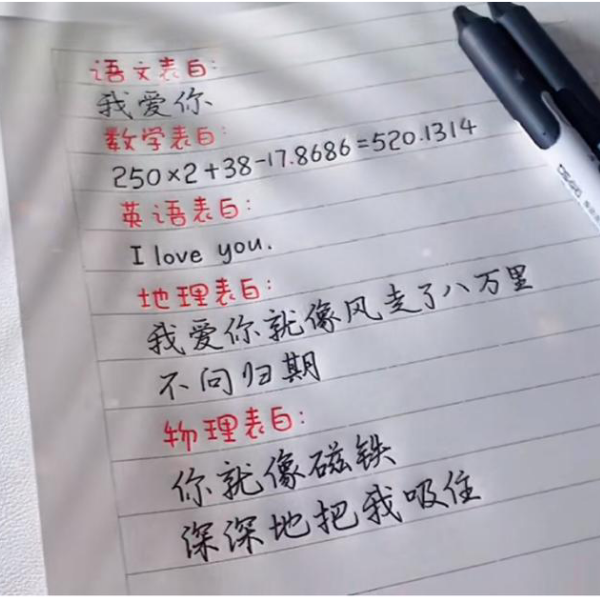 语文表白:
我爱你
数学表白:
250×2+38-17.8686=520.1314
英语表白:
I love you.
地理表白:
我爱你就像风走了八万里
不问归期
物理表白:
你就像磁铁
深深地把我吸住